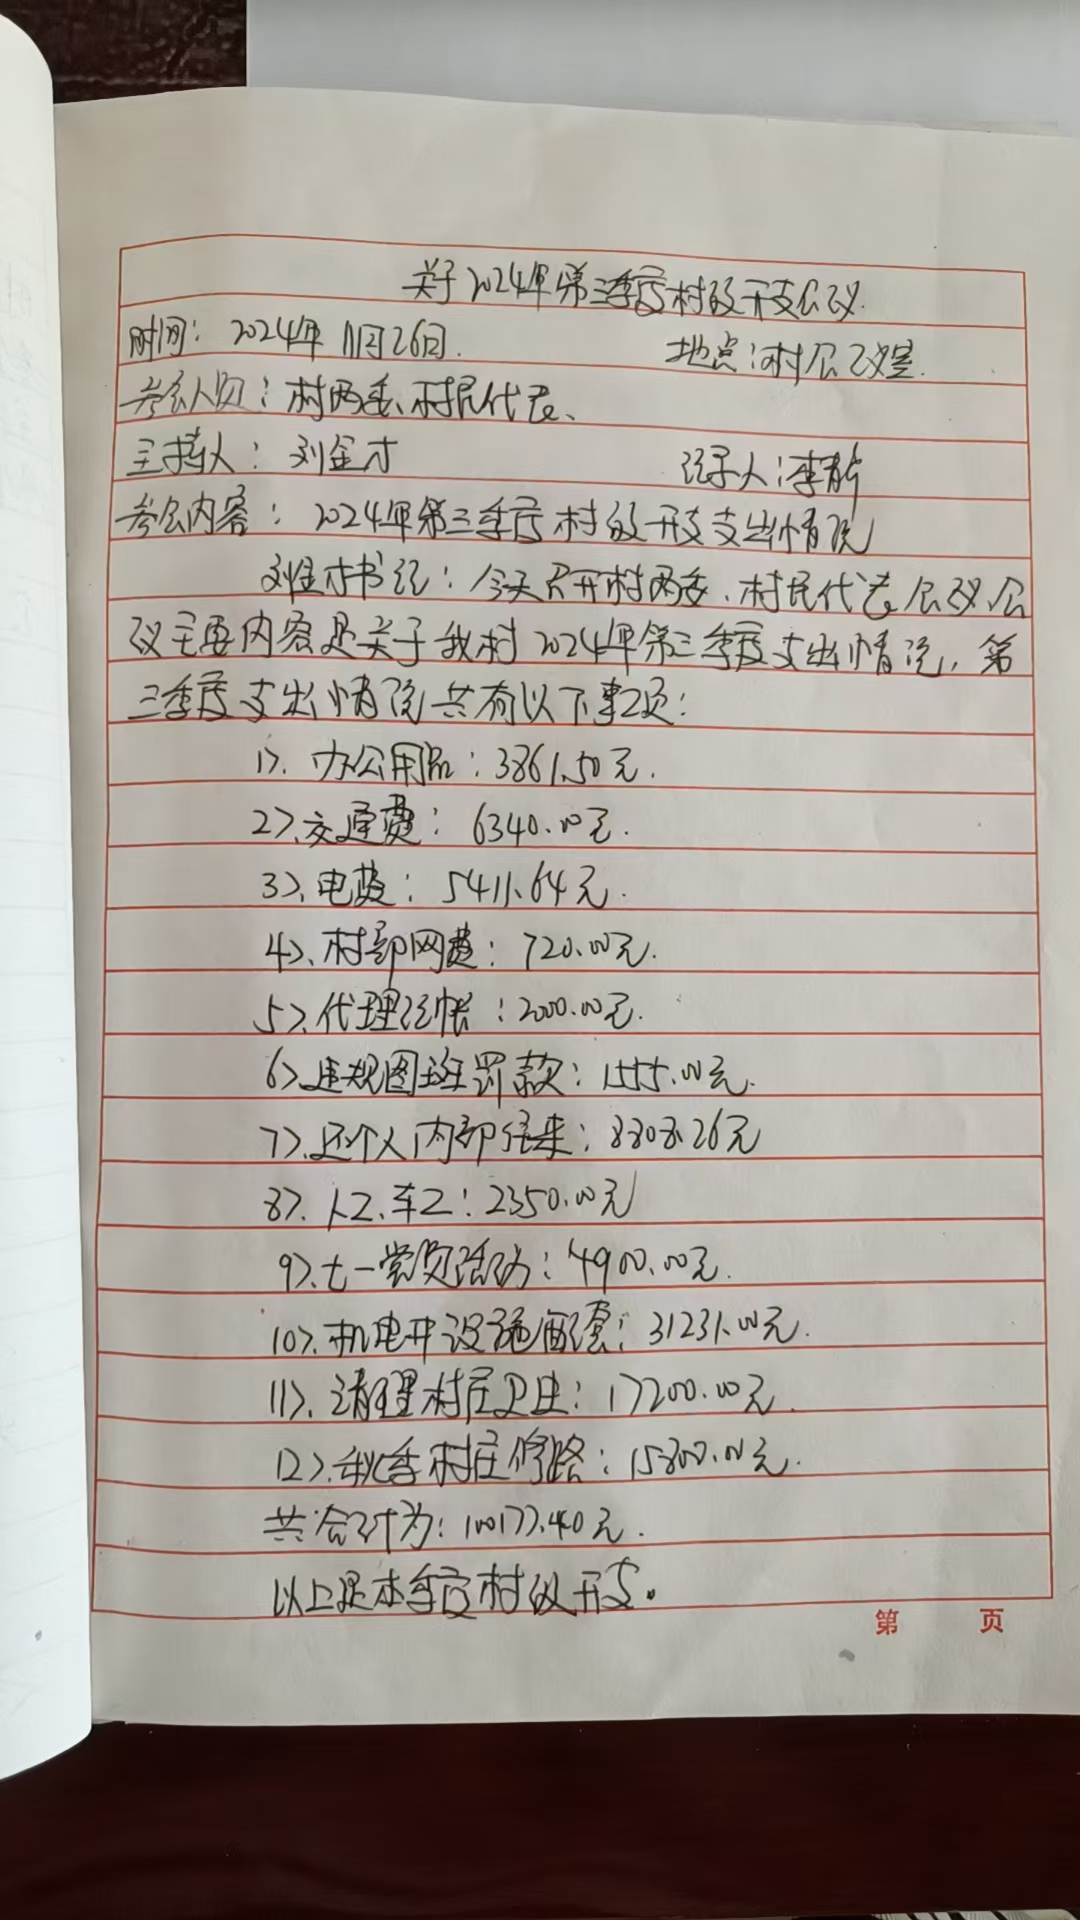 关于2024年第三季度村级开支会议.
时间：2024年11月26日. 地点：村会议室.
参会人员：村两委、村民代表、
主持人：刘金才 记录人：李
参会内容：2024年第三季度村级开支支出情况
刘金才书记：今天召开村两委、村民代表会议，会
议主要内容是关于我村2024年第三季度支出情况，第
三季度支出情况共有以下事项：
1>、办公用品：3861.50元.
2>、交通费：6340.00元.
3>、电费：5411.64元.
4>、村部网费：720.00元.
5>、代理记帐：2000.00元.
6>、违规图斑罚款：1555.00元.
7>、还个人内部往来：8808.26元
8>、人工、车工：2350.00元
9>、七一党员活动：4900.00元.
10>、机电井设施配套：31231.00元.
11>、清理村庄卫生：17200.00元.
12>、秋季村庄修路：15800.00元.
共合计为：100177.40元.
以上是本季度村级开支。
第 页